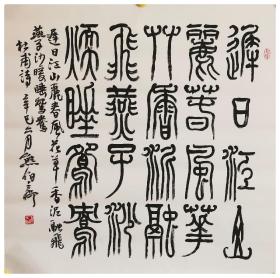 遲日江山
麗春風華
艸香泥融
飛燕子沙
煖睡鴛鴦
遲日江山麗春風花草香泥融飛
燕子沙暖睡鴛鴦
杜甫詩辛巳六月熊伯齊